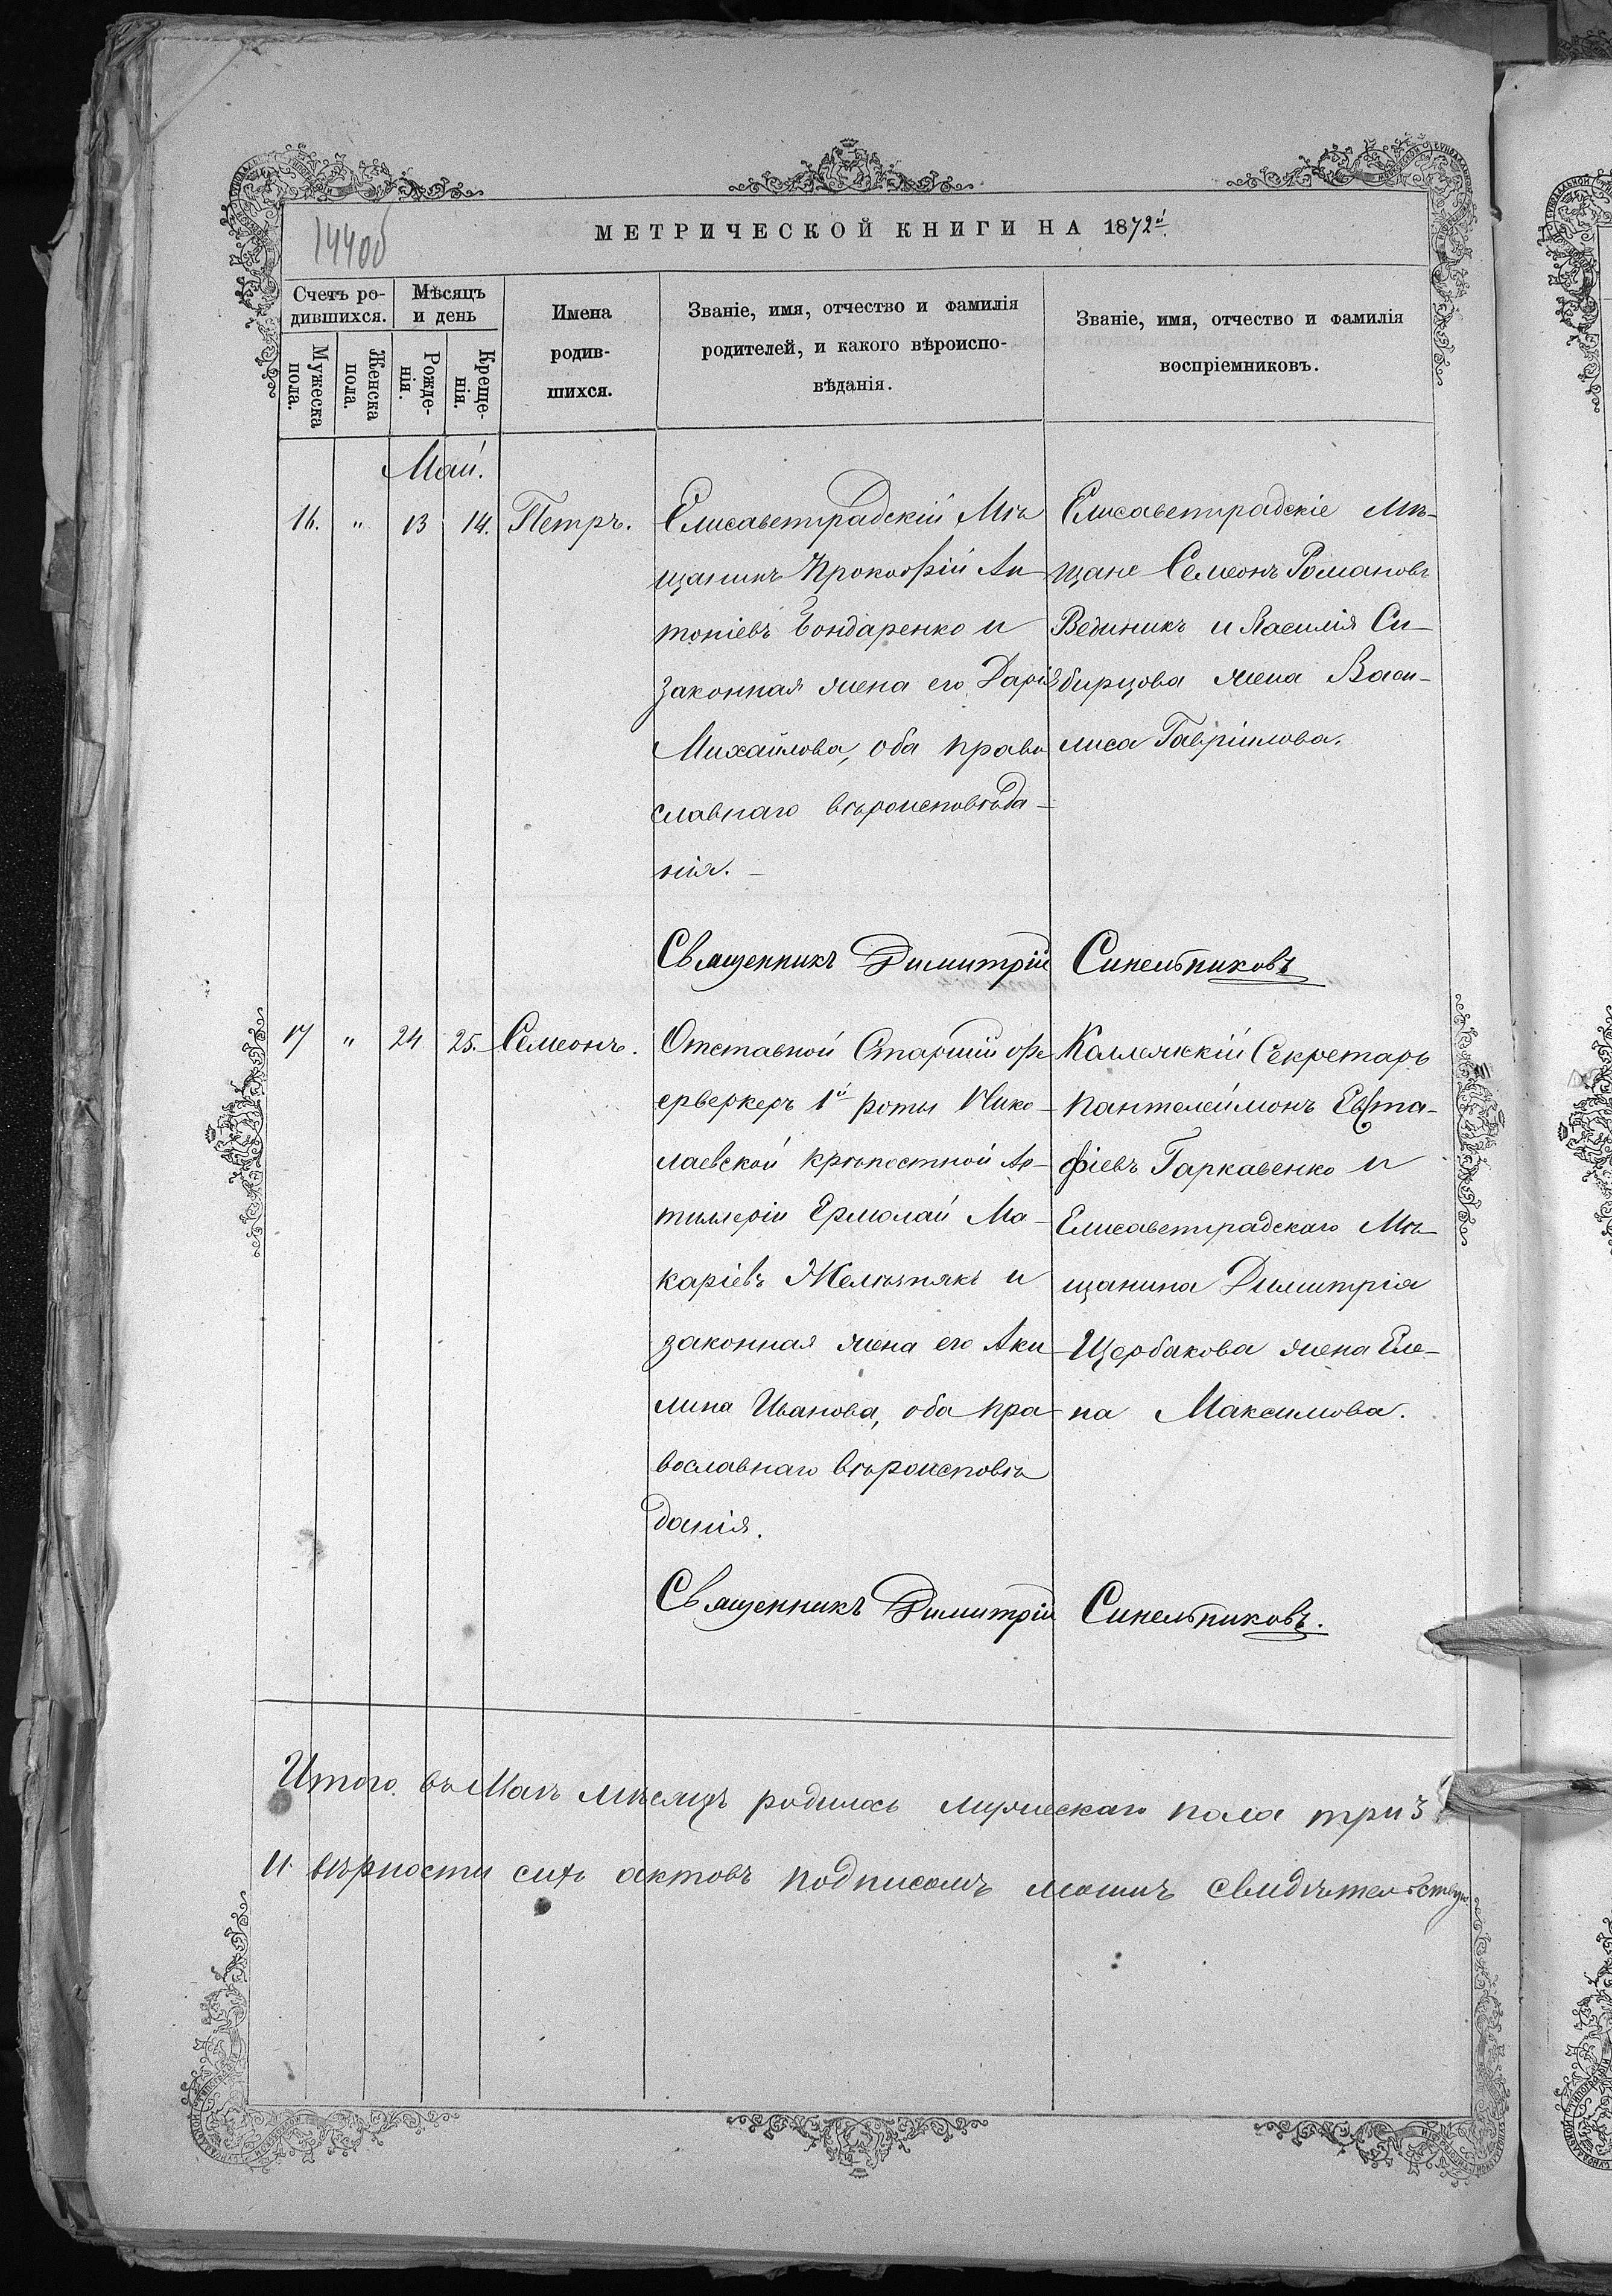 144об
МЕТРИЧЕСКОЙ КНИГИ НА 1872й.
Счетъ ро-
дившихся.
Мѣсяцъ
и день
Мужеска
пола.
Женска
пола.
Рожде-
нія.
Креще-
нія.
Имена
родив-
шихся.
Званіе, имя, отчество и фамилія
родителей, и какого вѣроиспо-
вѣданія.
Званіе, имя, отчество и фамилія
воспріемниковъ.
Май.
16. " 13 14. Петръ.
Елисаветградскій Мѣ
щанинъ Прокофій Ан
тоніевъ Бондаренко и
законная жена его Дарія
Михайлова, оба право
славнаго вѣроисповѣда-
нія.
Елисаветградскіе Мѣ-
щане Семеонъ Романовъ
Вединикъ и Василія Си-
бирцова жена Васи-
лиса Гавріилова.
Священникъ Димитрій Синельниковъ
17 " 24 25. Семеонъ.
Отставной Старшій фе
ерверкеръ 1й роты Нико-
лаевской крѣпостной Ар-
тиллеріи Ермолай Ма-
каріевъ Желѣзнякъ и
законная жена его Аки
лина Иванова, оба пра-
вославнаго вѣроисповѣ
данія.
Коллежскій Секретарь
Пантелеймонъ Евста-
фіевъ Гаркавенко и
Елисаветградскаго Мѣ-
щанина Димитрія
Щербакова жена Еле-
на Максимова.
Священникъ Димитрій Синельниковъ.
Итого въ Маѣ мѣсяцѣ родилось мужескаго пола три 3
и вѣрности сихъ актовъ подписомъ нашимъ свидѣтельствуемъ